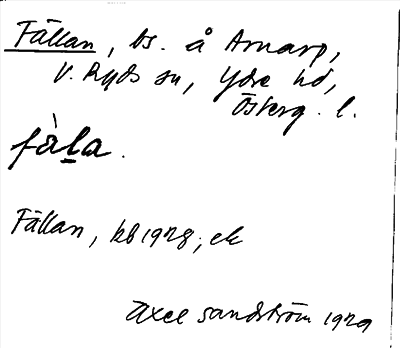 Fällan, bs. å Arnarp,
V. Ryds sn, Ydre hd,
Österg. l.
fàla.
Fällan, kb 1928, ek
Axel Sandström 1929